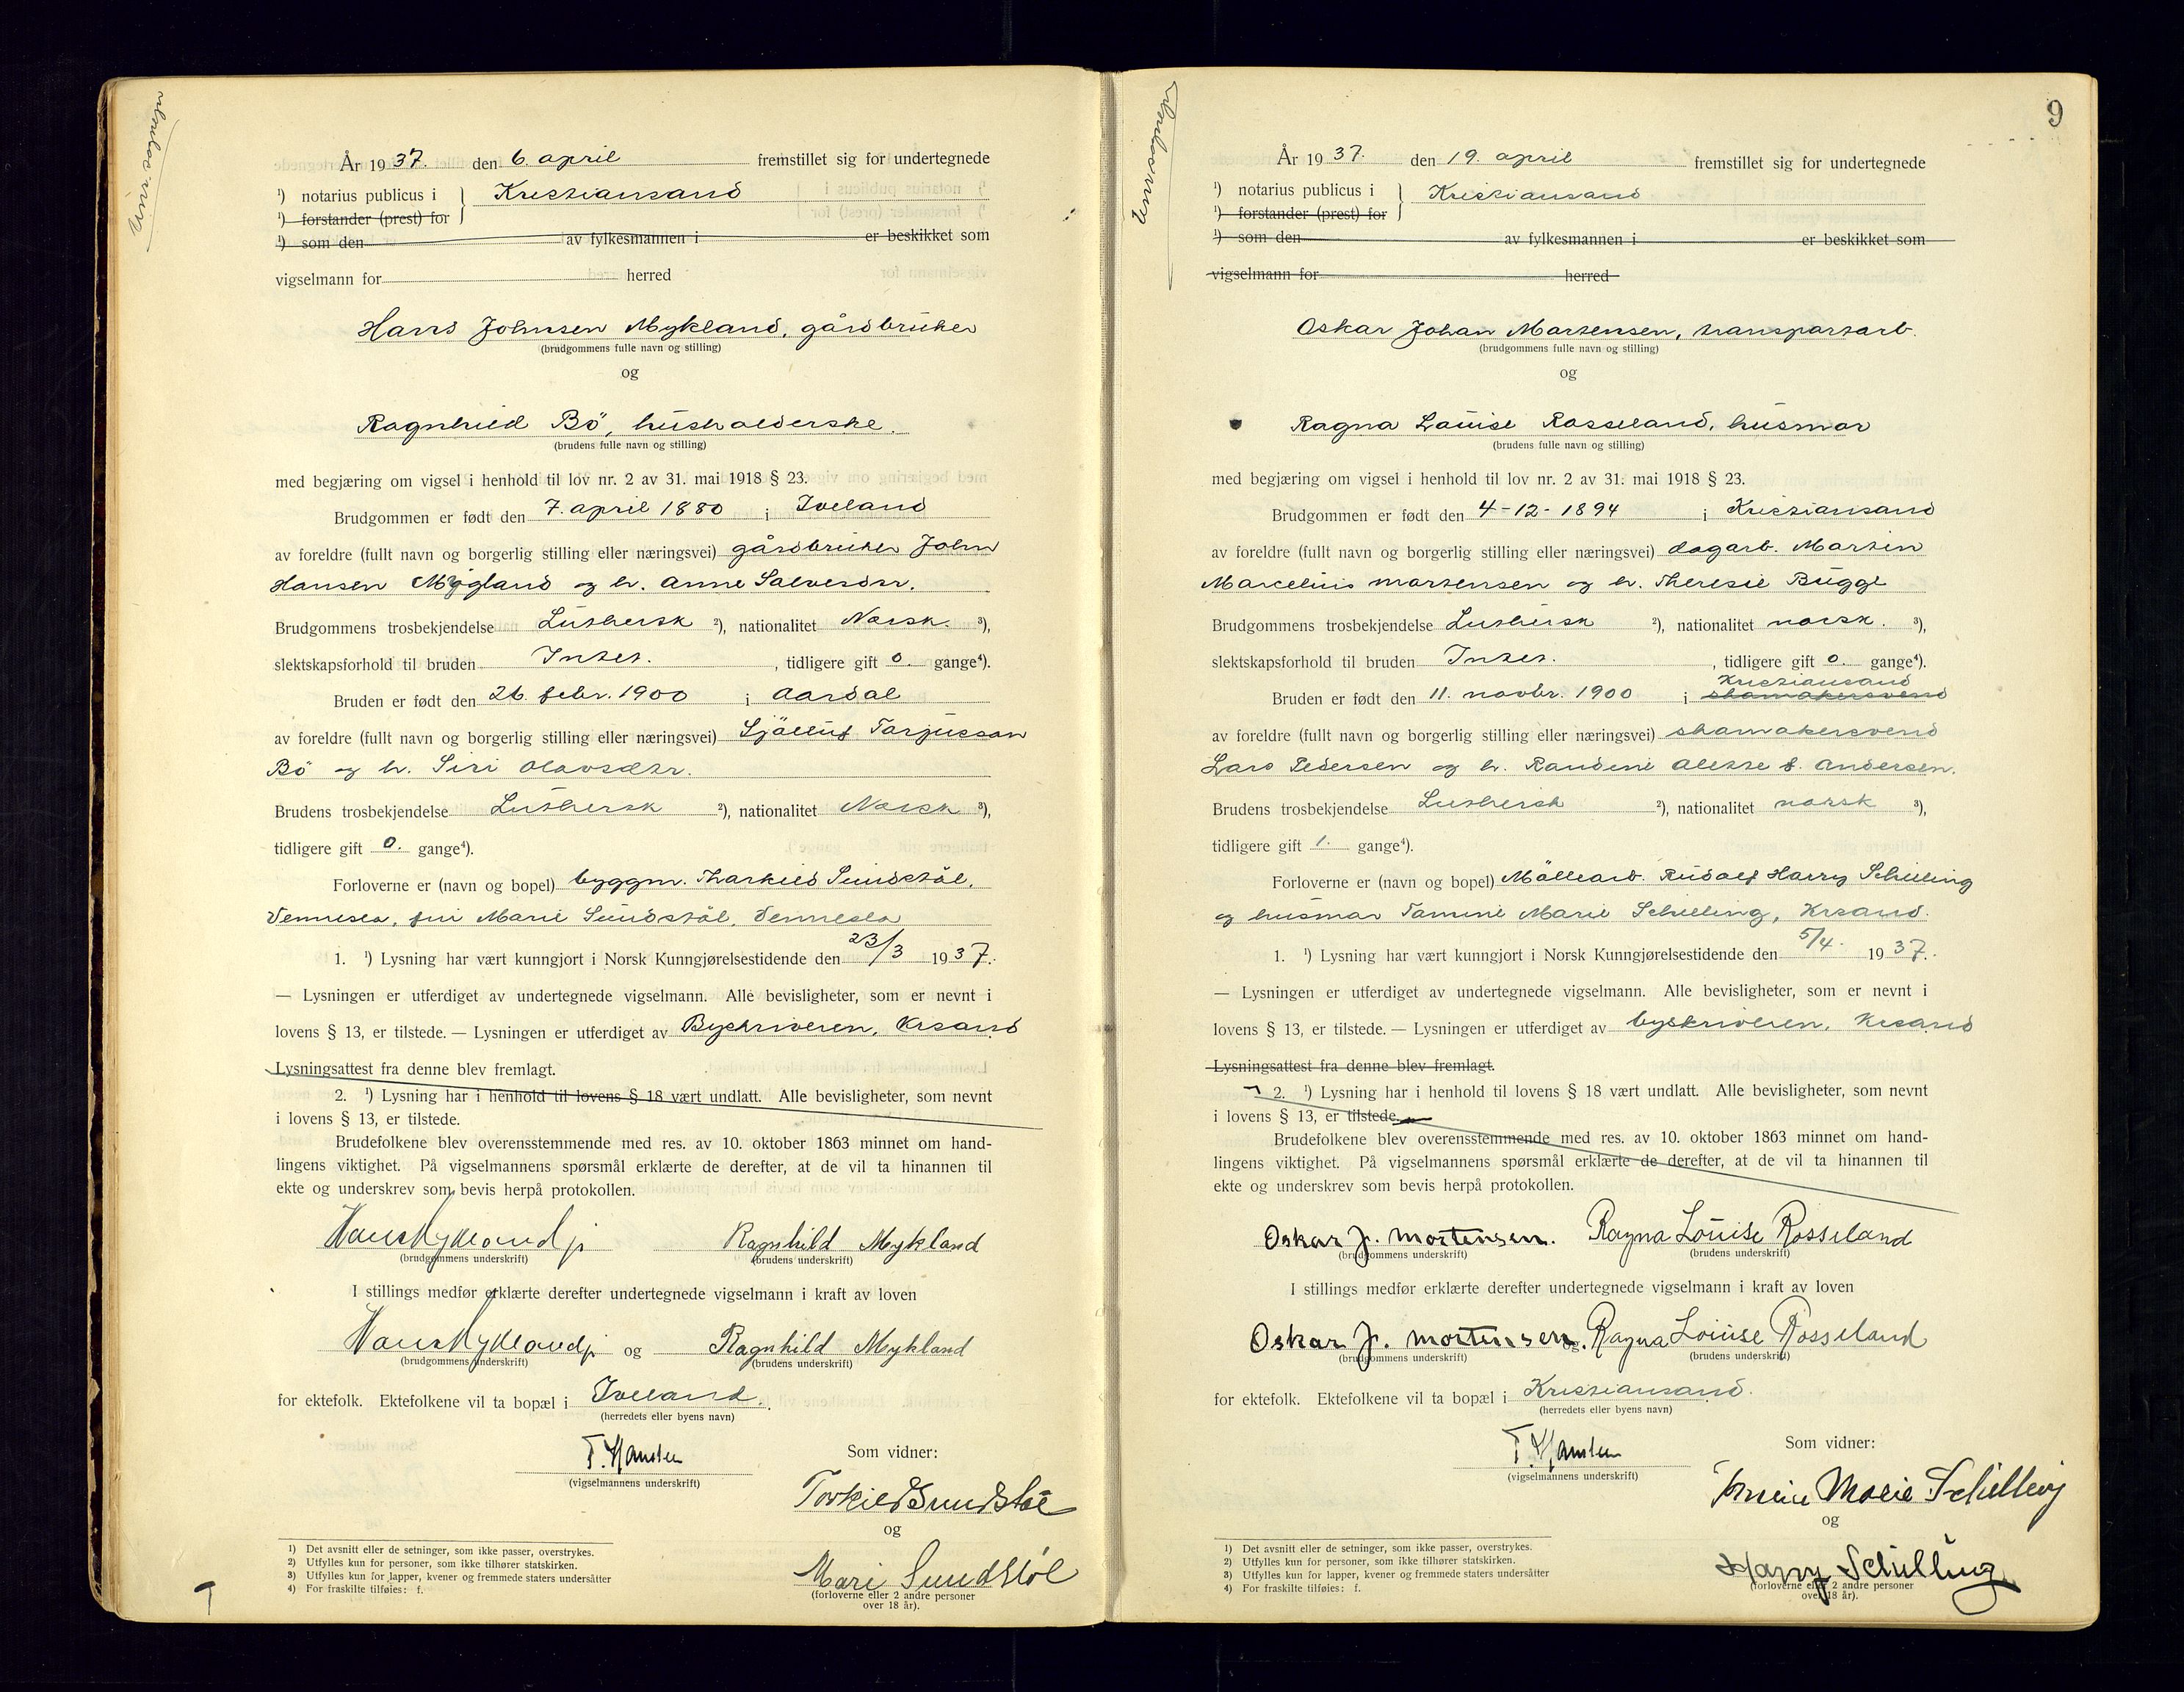 År 1937. den 6. april fremstillet sig for undertegnede
¹) notarius publicus i } Kristiansand
¹) forstander (prest) for
¹) som den av fylkesmannen i er beskikket som
vigselmann for herred
Hans Johnsen Mykland, gårdbruker
(brudgommens fulle navn og stilling)
og
Ragnhild Bö, husholderske.
(brudens fulle navn og stilling)
med begjæring om vigsel i henhold til lov nr. 2 av 31. mai 1918 § 23.
Brudgommen er født den 7. april 1880 i Iveland
av foreldre (fullt navn og borgerlig stilling eller næringsvei) gårdbruker John
Hansen Mögland og h. Anne Salvesdtr.
Brudgommens trosbekjendelse Luthersk ²), nationalitet Norsk. ³),
slektskapsforhold til bruden Intet. , tidligere gift 0. gange⁴).
Bruden er født den 26. febr. 1900 i Aardal
av foreldre (fullt navn og borgerlig stilling eller næringsvei) Sjölluf Tarjusson
Bö og h. Siri Olavsdtr.
Brudens trosbekjendelse Luthersk ²), nationalitet Norsk ³),
tidligere gift 0. gange⁴).
Forloverne er (navn og bopel) byggm. Thorkild Sundstöl,
Vennesla, fru Marie Sundstöl, Vennesla
1. ¹) Lysning har vært kunngjort i Norsk Kunngjørelsestidende den 23/3 1937.
— Lysningen er utferdiget av undertegnede vigselmann. Alle bevisligheter, som er nevnt i
lovens § 13, er tilstede. — Lysningen er utferdiget av Byskriveren, Krsand
Lysningsattest fra denne blev fremlagt.
2. ¹) Lysning har i henhold til lovens § 18 vært undlatt. Alle bevisligheter, som nevnt
i lovens § 13, er tilstede.
Brudefolkene blev overensstemmende med res. av 10. oktober 1863 minnet om hand-
lingens viktighet. På vigselmannens spørsmål erklærte de derefter, at de vil ta hinannen til
ekte og underskrev som bevis herpå protokollen.
Hans Mykland jr Ragnhild Mykland
(brudgommens underskrift) (brudens underskrift)
I stillings medfør erklærte derefter undertegnede vigselmann i kraft av loven
Hans Mykland jr og Ragnhild Mykland
(brudgommens underskrift) (brudens underskrift)
for ektefolk. Ektefolkene vil ta bopæl i Iveland.
(herredets eller byens navn)
T. Hansteen
(vigselmannens underskrift)
Som vidner:
Torkild Sundstøl
og
Mari Sundstøl
(forloverne eller 2 andre personer
over 18 år).
1) Det avsnitt eller de setninger, som ikke passer, overstrykes.
2) Utfylles kun for personer, som ikke tilhører statskirken.
3) Utfylles kun for lapper, kvener og fremmede staters undersåtter
4) For fraskilte tilføies: f.
9
År 1937. den 19. april fremstillet sig for undertegnede
¹) notarius publicus i } Kristiansand
¹) forstander (prest) for
¹) som den av fylkesmannen i er beskikket som
vigselmann for herred
Oskar Johan Mortensen, transportarb.
(brudgommens fulle navn og stilling)
og
Ragna Louise Rosseland, husmor
(brudens fulle navn og stilling)
med begjæring om vigsel i henhold til lov nr. 2 av 31. mai 1918 § 23.
Brudgommen er født den 4-12-1894 i Kristiansand
av foreldre (fullt navn og borgerlig stilling eller næringsvei) dagarb. Martin
Marcelius Mortensen og h. Theresie Bugge
Brudgommens trosbekjendelse Luthersk ²), nationalitet norsk. ³),
slektskapsforhold til bruden Intet. , tidligere gift 0. gange⁴).
Kristiansand
Bruden er født den 11. novbr. 1900 i skomakersvend
av foreldre (fullt navn og borgerlig stilling eller næringsvei) skomakersvend
Lars Pedersen og h. Randine Alette f. Andersen.
Brudens trosbekjendelse Luthersk ²), nationalitet norsk ³),
tidligere gift 1. gange⁴).
Forloverne er (navn og bopel) Möllearb. Rudolf Harry Schilling
og husmor Tomine Marie Schilling, Krsand.
1. ¹) Lysning har vært kunngjort i Norsk Kunngjørelsestidende den 5/4. 1937.
— Lysningen er utferdiget av undertegnede vigselmann. Alle bevisligheter, som er nevnt i
lovens § 13, er tilstede. — Lysningen er utferdiget av byskriveren, Krsand
Lysningsattest fra denne blev fremlagt.
2. ¹) Lysning har i henhold til lovens § 18 vært undlatt. Alle bevisligheter, som nevnt
i lovens § 13, er tilstede.
Brudefolkene blev overensstemmende med res. av 10. oktober 1863 minnet om hand-
lingens viktighet. På vigselmannens spørsmål erklærte de derefter, at de vil ta hinannen til
ekte og underskrev som bevis herpå protokollen.
Oskar J. Mortensen. Ragna Louise Rosseland
(brudgommens underskrift) (brudens underskrift)
I stillings medfør erklærte derefter undertegnede vigselmann i kraft av loven
Oskar J. Mortensen. og Ragna Louise Rosseland
(brudgommens underskrift) (brudens underskrift)
for ektefolk. Ektefolkene vil ta bopæl i Kristiansand.
(herredets eller byens navn)
T. Hansteen
(vigselmannens underskrift)
Som vidner:
Tomine Marie Schilling
og
Harry Schilling
(forloverne eller 2 andre personer
over 18 år).
1) Det avsnitt eller de setninger, som ikke passer, overstrykes.
2) Utfylles kun for personer, som ikke tilhører statskirken.
3) Utfylles kun for lapper, kvener og fremmede staters undersåtter
4) For fraskilte tilføies: f.